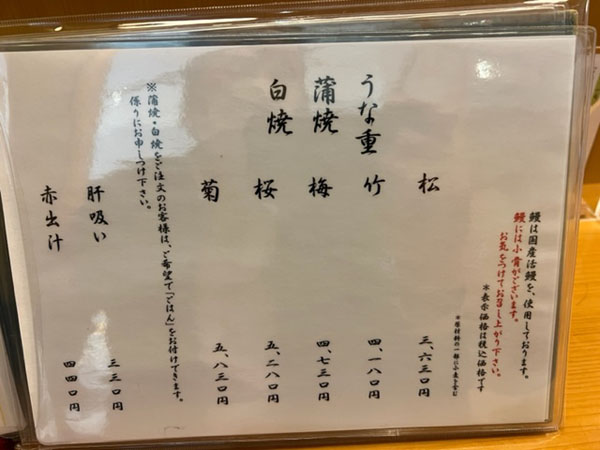 鰻は国産活鰻を、使用しております。
鰻には小骨がございます。
お気をつけてお召し上がり下さい。
*表示価格は税込価格です
*原材料の一部に小麦を含む
松 三、六三〇円
うな重 竹 四、一八〇円
蒲焼 梅 四、七三〇円
白焼 桜 五、二八〇円
菊 五、八三〇円
※蒲焼・白焼をご注文のお客様は、ご希望で「ごはん」をお付けできます。
係りにお申しつけ下さい。
肝吸い 三三〇円
赤出汁 四四〇円